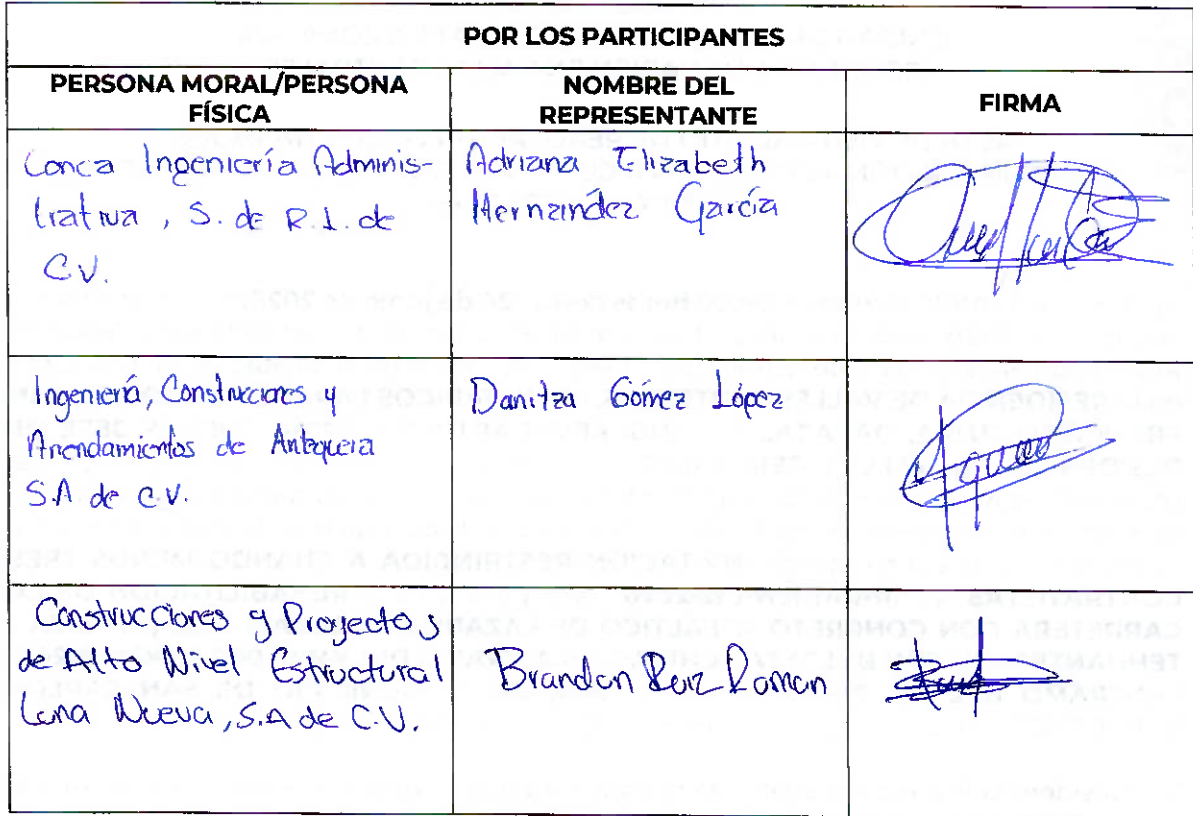 POR LOS PARTICIPANTES
PERSONA MORAL/PERSONA
FÍSICA
NOMBRE DEL
REPRESENTANTE
FIRMA
Conca Ingeniería Adminis-
trativa, S. de R.L. de
C.V.
Adriana Elizabeth
Hernández García
Ingeniería, Construcciones y
Arrendamientos de Antequera
S.A de C.V.
Danitza Gómez López
Construcciones y Proyectos
de Alto Nivel Estructural
Luna Nueva, S.A de C.V.
Brandon Ruiz Roman